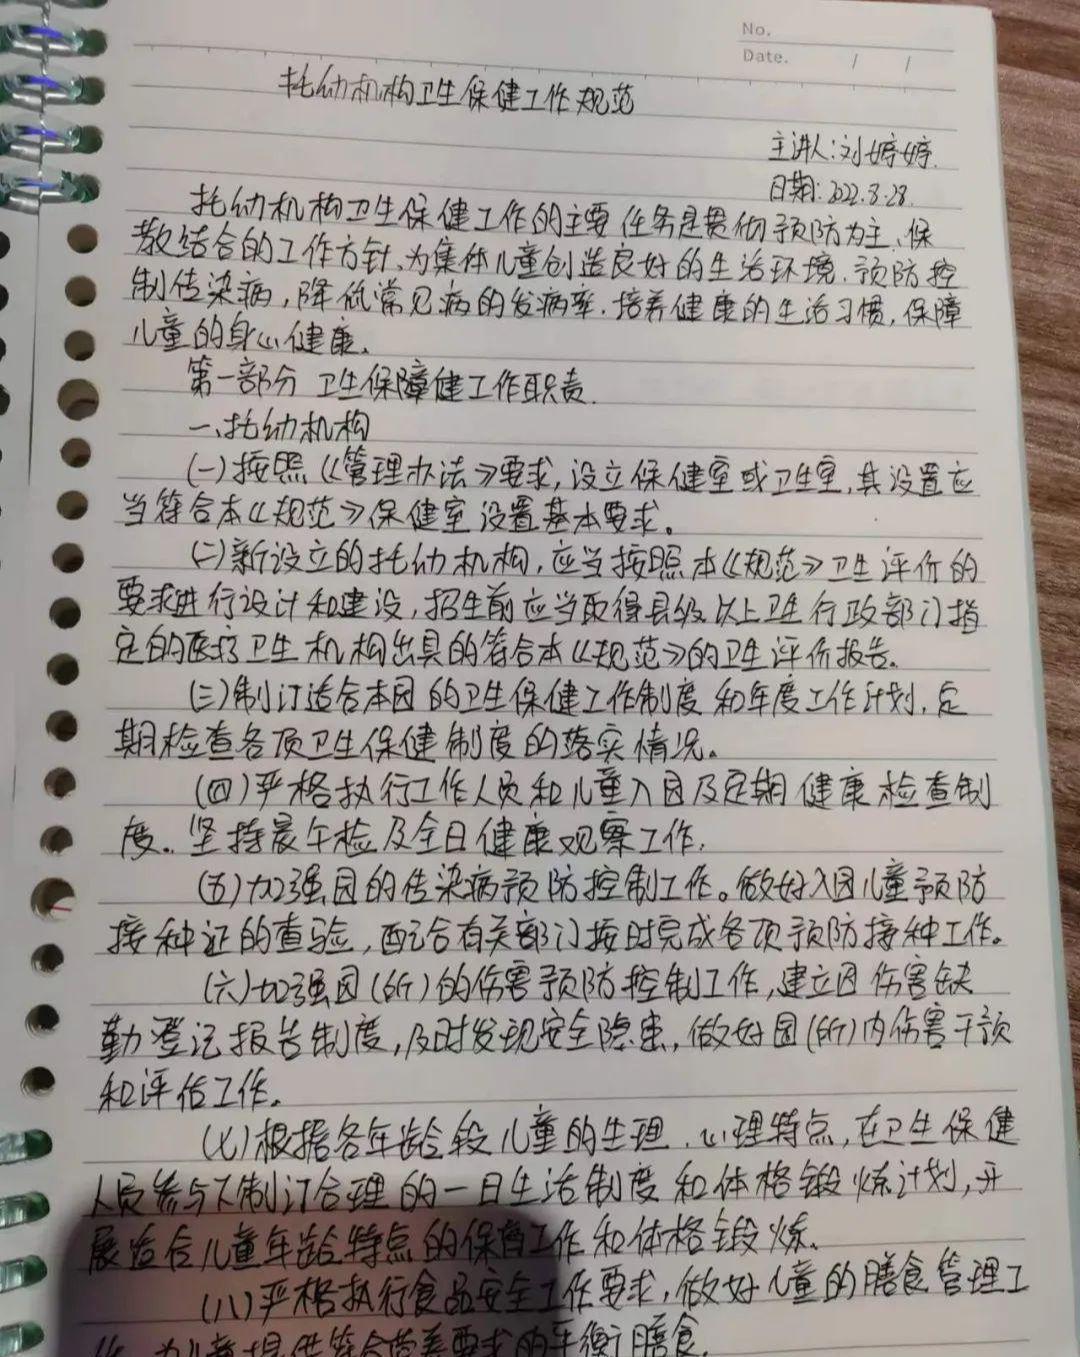 No.
Date. / /
托幼机构卫生保健工作规范
主讲人:刘婷婷.
日期:2022.3.28.
托幼机构卫生保健工作的主要任务是贯彻预防为主、保
教结合的工作方针、为集体儿童创造良好的生活环境.预防控
制传染病,降低常见病的发病率.培养健康的生活习惯,保障
儿童的身心健康.
第一部分 卫生保障健工作职责.
一、托幼机构
(一)按照《管理办法》要求,设立保健室或卫生室,其设置应
当符合本《规范》保健室设置基本要求。
(二)新设立的托幼机构,应当按照本《规范》卫生评价的
要求进行设计和建设,招生前应当取得县级以上卫生行政部门指
定的医疗卫生机构出具的符合本《规范》的卫生评价报告。
(三)制订适合本园的卫生保健工作制度和年度工作计划,定
期检查各项卫生保健制度的落实情况。
(四)严格执行工作人员和儿童入园及定期健康检查制
度.坚持晨午检及全日健康观察工作,
(五)加强园的传染病预防控制工作。做好入园儿童预防
接种证的查验,配合有关部门按时完成各项预防接种工作。
(六)加强园(所)的伤害预防控制工作,建立因伤害缺
勤登记报告制度,及时发现安全隐患,做好园(所)内伤害干预
和评估工作。
(七)根据各年龄段儿童的生理、心理特点,在卫生保健
人员参与下制订合理的一日生活制度和体格锻炼计划,开
展适合儿童年龄特点的保育工作和体格锻炼.
(八)严格执行食品安全工作要求,做好儿童的膳食管理工
作,为儿童提供符合营养要求的平衡膳食.